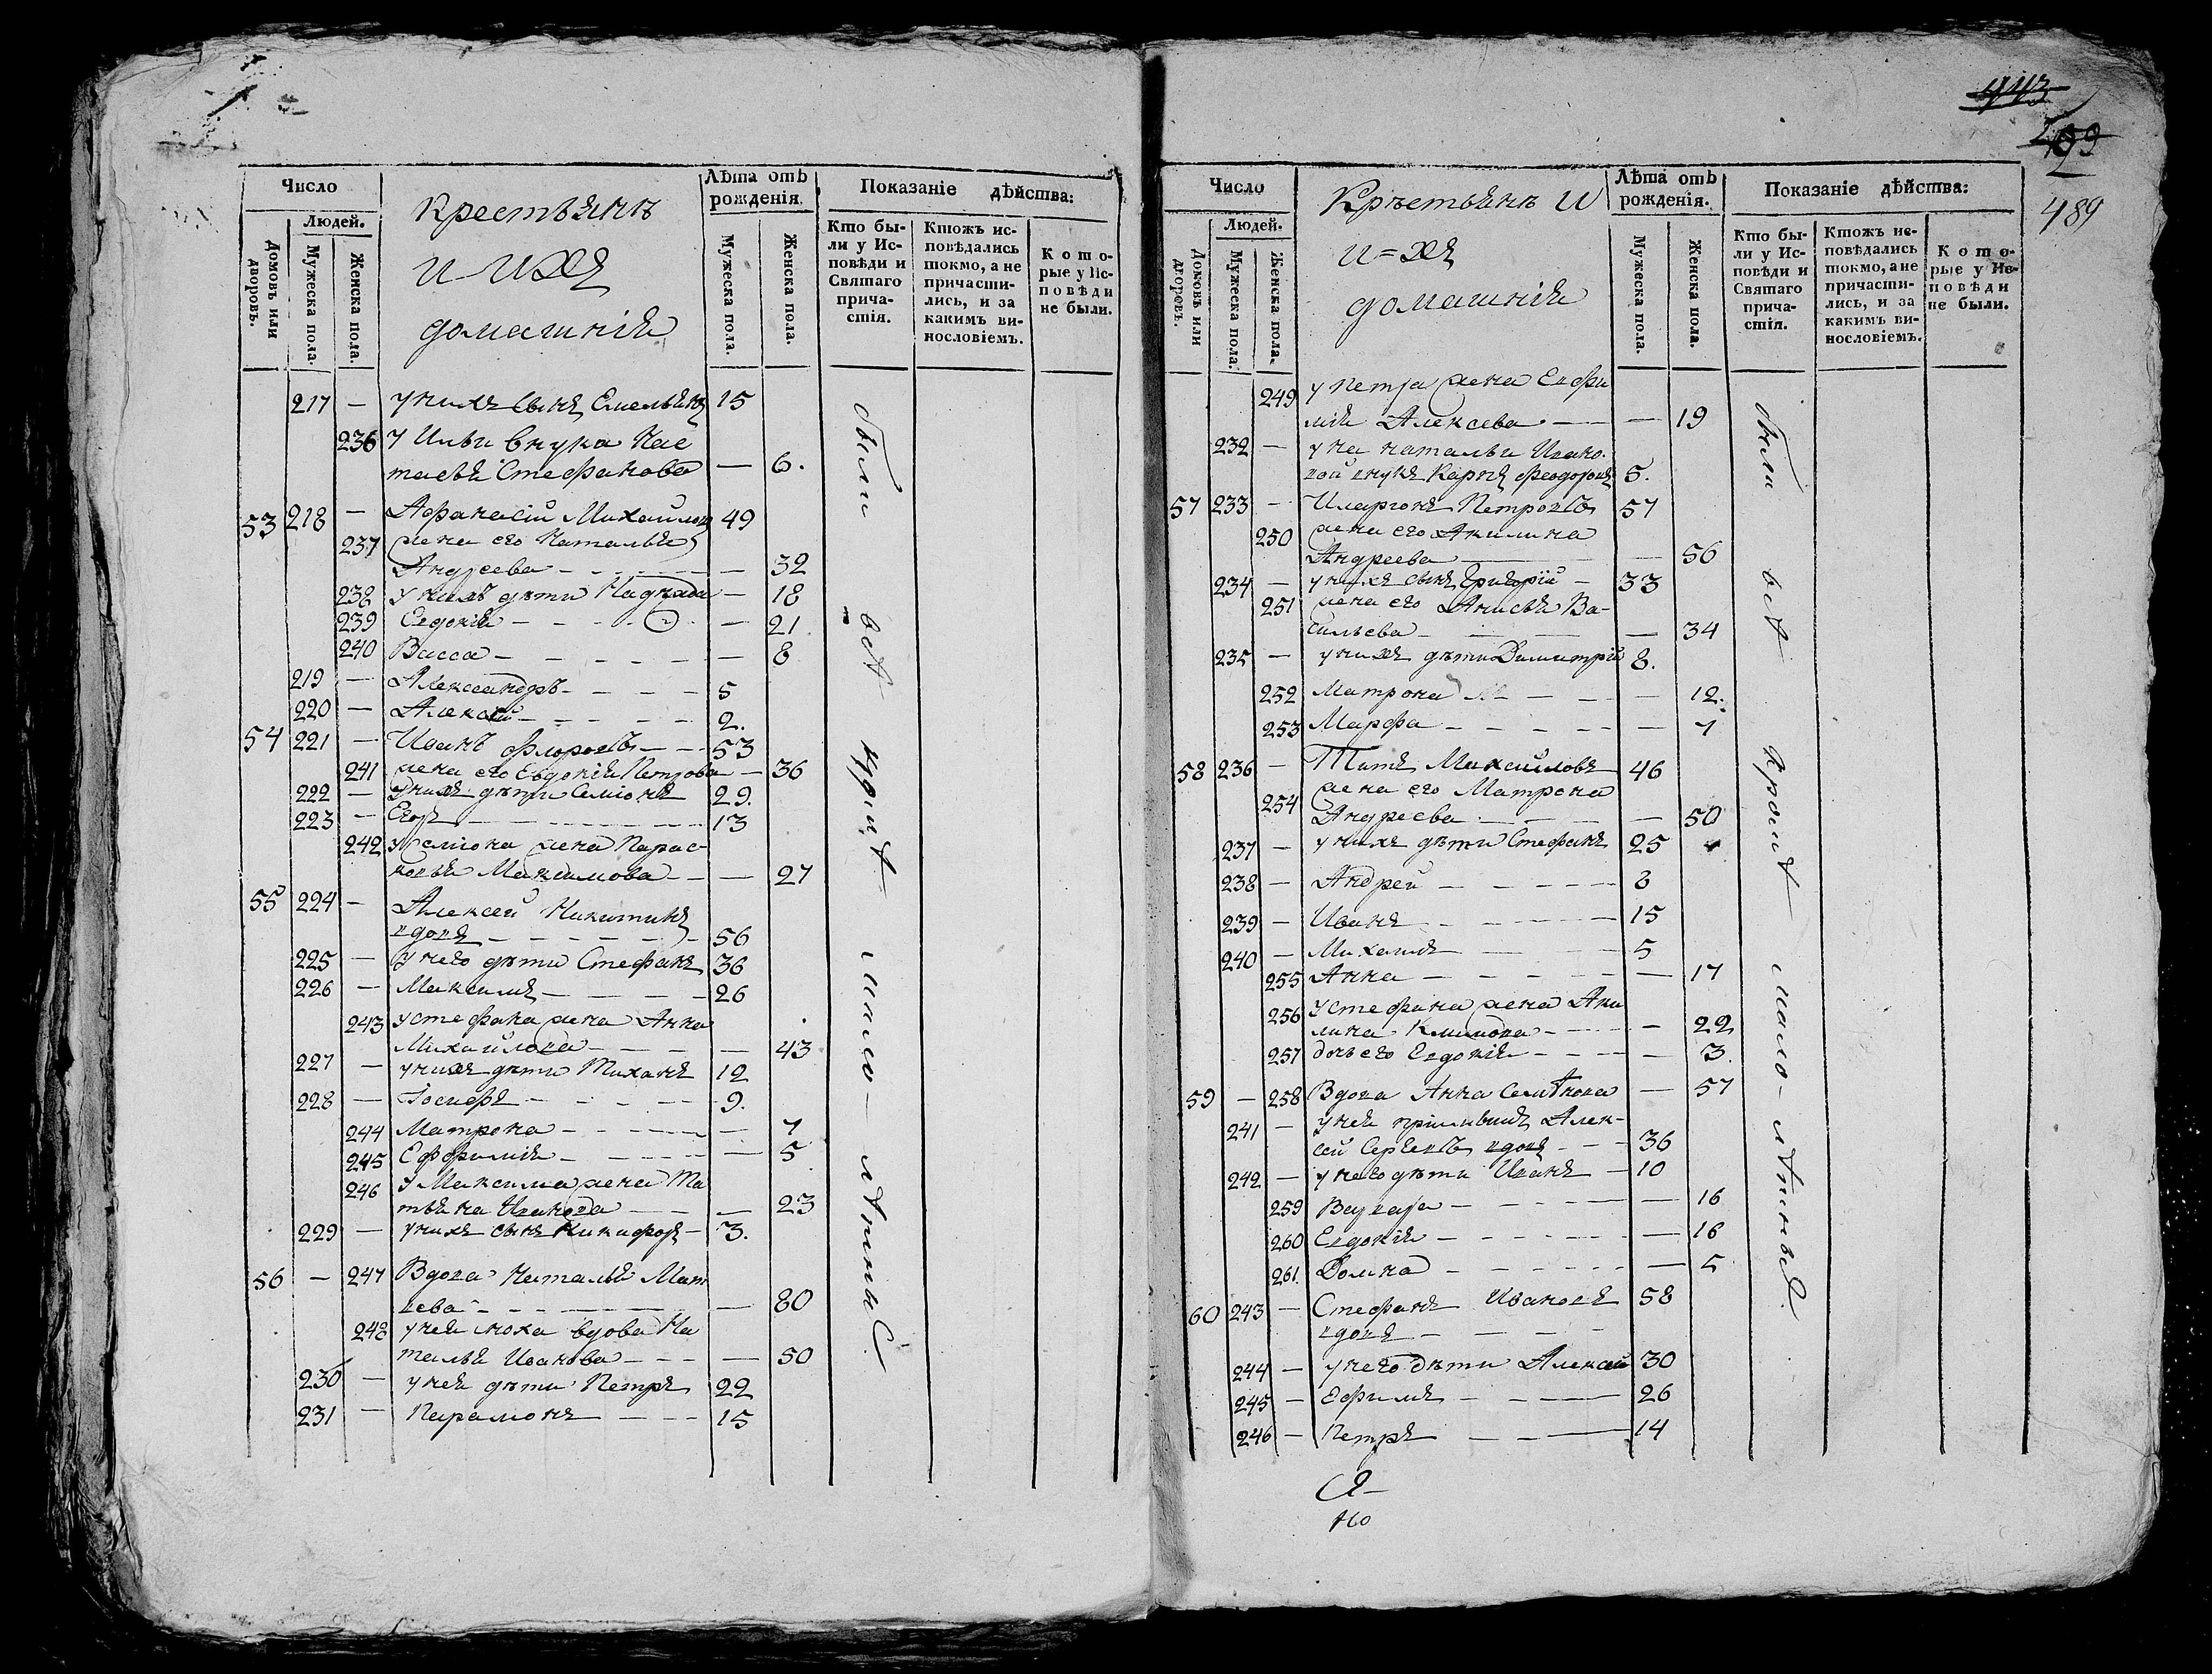 Число
Людей.
Домовъ или дворовъ.
Мужеска пола.
Женска пола.
Крестьянъ
и ихъ
домашнія
Лѣта отъ рожденія.
Мужеска пола.
Женска пола.
Показаніе дѣйства:
Кто были у Исповѣди и Святаго причастія.
Ктожъ исповѣдались токмо, а не причастились, и за какимъ винословіемъ.
Которые у Исповѣди не были.
217 — у нихъ сынъ Емельянъ 15
236 У Ильи внука Нас
тасья Стефанова — 6.
53 218 — Афанасій Михайловъ 49
237 жена его Наталья
Андреева — 32
238 у нихъ дѣти Надежда — 18
239 Евдокія — 21
240 Васса — 8
219 — Александръ 5
220 — Алексѣй 2.
54 221 — Иванъ Флоровъ 53
241 жена его Евдокія Петрова — 36
222 — у нихъ дѣти Семіонъ 29.
223 — Егоръ 13
242 у Семіона жена Парас-
ковья Максимова — 27
55 224 — Алексей Никитинъ
вдовъ 56
225 — У него дѣти Стефанъ 36
226 — Максимъ 26
243 у стефана жена Анна
Михайлова — 43
227 — у нихъ дѣти Тиханъ 12
228 — Іосифъ 9.
244 Матрона — 7
245 Ефримія — 5
246 У Максима жена Та
тьяна Иванова — 23
229 — у нихъ сынъ Никифоръ 3.
56 — 247 Вдова Наталья Мат
вева — 80
248 у нея сноха вдова На
талья Иванова — 50
230 — у нея дѣти Петръ 22
231 — Парамонъ 15
были всѣ кромѣ мало-лѣтныхъ
443
489
Число
Людей.
Домовъ или дворовъ.
Мужеска пола.
Женска пола.
Кръстьянъ И
и=хъ
домашнія
Лѣта отъ рожденія.
Мужеска пола.
Женска пола.
Показаніе дѣйства:
Кто были у Исповѣди и Святаго причастія.
Ктожъ исповѣдались токмо, а не причастились, и за какимъ винословіемъ.
Которые у Исповѣди не были.
249 у петра жена Евфи
мія Алексева — 19
232 — у на натальи Ивано.
вой внукъ Карпъ Феодоровъ 5.
57 233 — Иларіонъ Петровъ 57
250 жена его Акилина
Андреева — 56
234 — у нихъ сынъ Григорій 33
251 жена его Анисья Ва-
сильева — 34
235 — у нихъ дѣти Димитрій 8.
252 Матрона — 12.
253 Марфа — 7
58 236 — Титъ Михайловъ 46
254 жена его Матрона
Андреева — 50
237 — у нихъ дѣти Стефанъ 25
238 — Андрей 8
239 — Иванъ 15
240 — Михаилъ 5
255 Анна — 17
256 у стефана жена Аки
лина Климова — 22
257 дочь его Евдокія — 3.
59 — 258 Вдова Анна Семѣнова — 57
241 — у нея Алек-
сей Сергевъ вдовъ 36
242 — у него дѣти Иванъ 10
259 Варвара — 16
260 Евдокія — 16
261. Домна — 5
60 243 — Стефанъ Ивановъ 58
вдовъ
244 — у него дѣти Алексей 30
245 — Ефимъ 26
246 — Петръ 14
были всѣ кромѣ мало-лѣтныхъ.